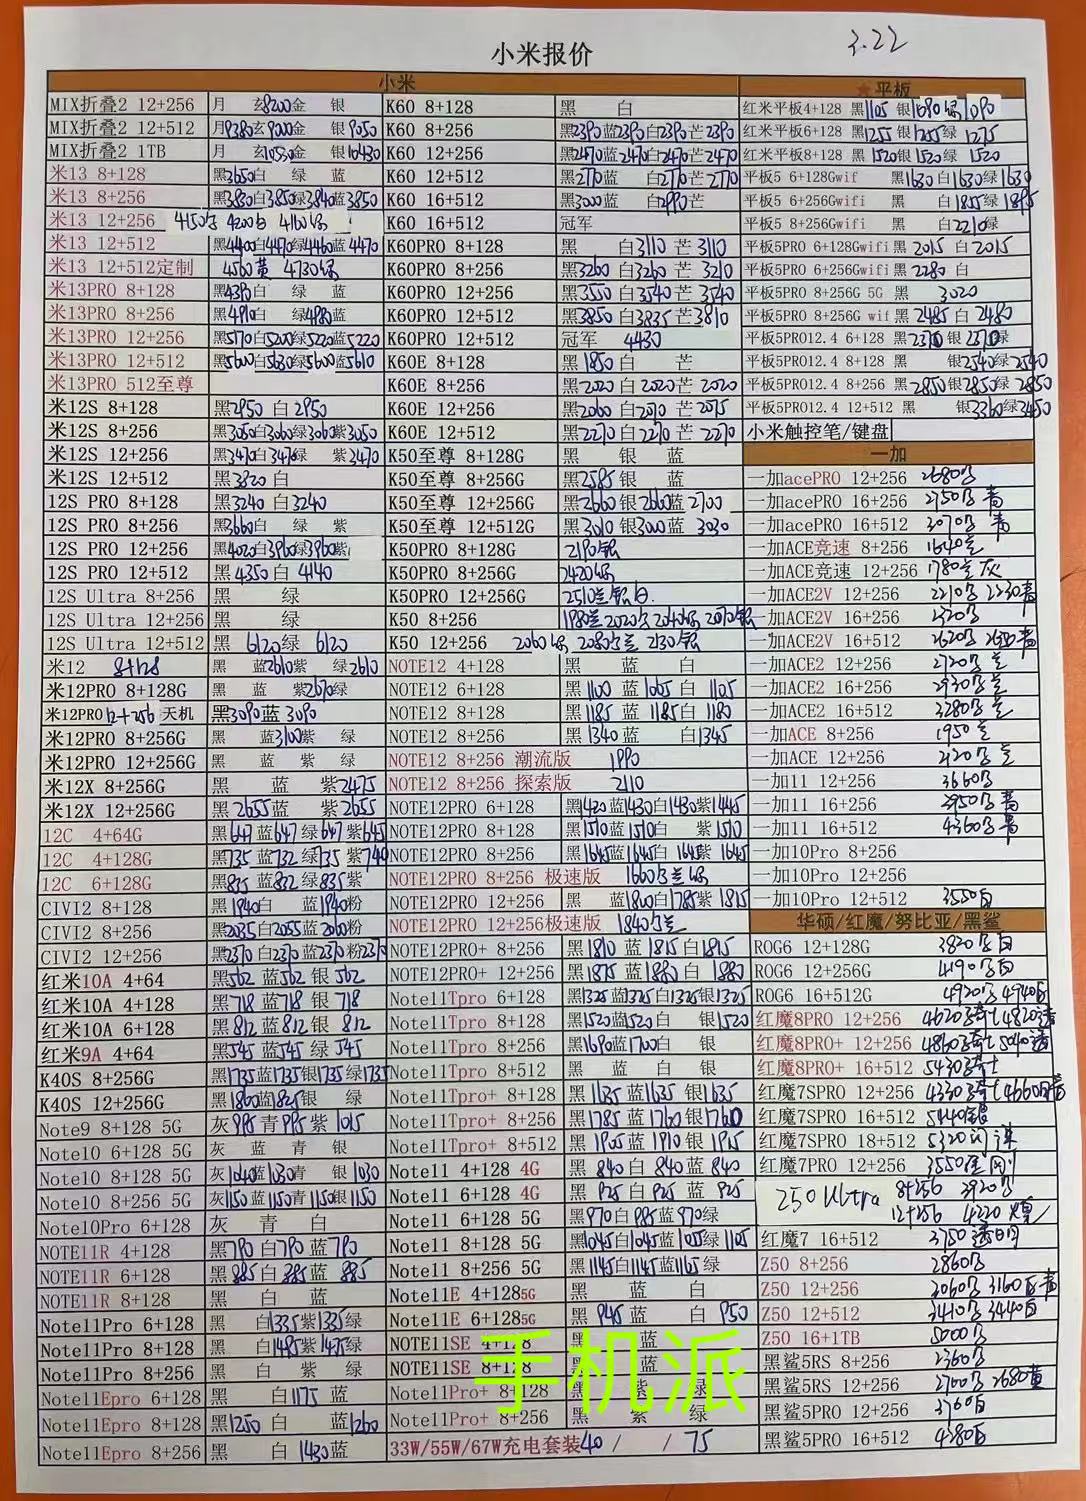 3.22
小米报价
小米
★平板
MIX折叠2 12+256 月 玄8200金 银
MIX折叠2 12+512 月9380玄9000金 银9050
MIX折叠2 1TB 月 玄10530金 银10430
米13 8+128 黑3650白 绿 蓝
米13 8+256 黑3830白3850绿3840蓝3850
米13 12+256 4150 4200白 4160绿
米13 12+512 黑4400白4470绿4460蓝4470
米13 12+512定制 4560黄 4730绿
米13PRO 8+128 黑4390白 绿 蓝
米13PRO 8+256 黑4910白 绿4980蓝
米13PRO 12+256 黑5170白5200绿5220蓝5220
米13PRO 12+512 黑5600白5630绿5600蓝5610
米13PRO 512至尊
米12S 8+128 黑2950 白2950
米12S 8+256 黑3050白3060绿3060紫3050
米12S 12+256 黑3470白3470绿 紫3470
米12S 12+512 黑3820白
12S PRO 8+128 黑3240白3240
12S PRO 8+256 黑3660白 绿 紫
12S PRO 12+256 黑4020白3960绿3960紫
12S PRO 12+512 黑4350 白 4140
12S Ultra 8+256 黑 绿
12S Ultra 12+256 黑 绿
12S Ultra 12+512 黑 6120绿 6120
米12 8+128 黑 蓝2610紫 绿2610
米12PRO 8+128G 黑 蓝 紫2670绿
米12PRO 12+256 天机 黑3090蓝 3090
米12PRO 8+256G 黑 蓝3100紫 绿
米12PRO 12+256G 黑 蓝 紫 绿
米12X 8+256G 黑 蓝 紫2475
米12X 12+256G 黑 2655蓝 紫 2655
12C 4+64G 黑647蓝647绿647紫645
12C 4+128G 黑735蓝732绿735紫740
12C 6+128G 黑835蓝832绿835紫
CIVI2 8+128 黑1940白 蓝1940粉
CIVI2 8+256 黑2035白2055蓝2060粉
CIVI2 12+256 黑2370白2370蓝2370粉2370
红米10A 4+64 黑562蓝562银562
红米10A 4+128 黑718蓝718银718
红米10A 6+128 黑812蓝812银 812
红米9A 4+64 黑545蓝545绿545
K40S 8+256G 黑1735蓝1735银1735绿1735
K40S 12+256G 黑1860蓝1825银 绿
Note9 8+128 5G 灰995青995紫1015
Note10 6+128 5G 灰 蓝 青 银
Note10 8+128 5G 灰1040蓝1030青 银1030
Note10 8+256 5G 灰1150蓝1150青1150银1150
Note10Pro 6+128 灰 青 白
NOTE11R 4+128 黑790白790蓝790
NOTE11R 6+128 黑885白885蓝 885
NOTE11R 8+128 黑 白 蓝
Note11Pro 6+128 黑 白1335紫1335绿
Note11Pro 8+128 黑 白1495紫1475绿
Note11Pro 8+256 黑 白 紫 绿
Note11Epro 6+128 黑 白1175 蓝
Note11Epro 8+128 黑1250 白 蓝1260
Note11Epro 8+256 黑 白1430蓝
K60 8+128 黑 白
K60 8+256 黑2390蓝2390白2390芒2390
K60 12+256 黑2470蓝2470白2470芒2470
K60 12+512 黑2770蓝 白2770芒2770
K60 16+512 黑3000蓝 白2990芒
K60 16+512 冠军
K60PRO 8+128 黑 白3110芒3110
K60PRO 8+256 黑3260白3260芒3210
K60PRO 12+256 黑3550白3540芒3540
K60PRO 12+512 黑3850白3835芒3810
K60PRO 12+512 冠军 4430
K60E 8+128 黑1850白 芒
K60E 8+256 黑2020白2020芒2020
K60E 12+256 黑2060白2070芒2075
K60E 12+512 黑2270白2270芒2270
K50至尊 8+128G 黑 银 蓝
K50至尊 8+256G 黑2585银 蓝
K50至尊 12+256G 黑2660银2660蓝2700
K50至尊 12+512G 黑3010银3000蓝3030
K50PRO 8+128G 2190银
K50PRO 8+256G 2420绿
K50PRO 12+256G 2510兰银白.
K50 8+256 1980兰2020 2040绿 2070银
K50 12+256 2060绿 2080兰 2130银
NOTE12 4+128 黑 蓝 白
NOTE12 6+128 黑1100蓝1065白 1105
NOTE12 8+128 黑1185蓝1185白1180
NOTE12 8+256 黑1340蓝 白1345
NOTE12 8+256 潮流版 1990
NOTE12 8+256 探索版 2110
NOTE12PRO 6+128 黑1420蓝1430白1430紫1445
NOTE12PRO 8+128 黑1510蓝1510白 紫1510
NOTE12PRO 8+256 黑1645蓝1645白1645紫1645
NOTE12PRO 8+256 极速版 1660兰绿
NOTE12PRO 12+256 黑 蓝1800白1785紫1815
NOTE12PRO 12+256极速版 1840兰
NOTE12PRO+ 8+256 黑1810蓝1815白1815
NOTE12PRO+ 12+256 黑1875蓝1880白 1880
Note11Tpro 6+128 黑1325蓝1325白1325银1325
Note11Tpro 8+128 黑1520蓝1520白 银1520
Note11Tpro 8+256 黑1690蓝1700白 银
Note11Tpro 8+512 黑 蓝 白 银
Note11Tpro+ 8+128 黑1635蓝1635 银1635
Note11Tpro+ 8+256 黑1785蓝1760 银1760
Note11Tpro+ 8+512 黑1905蓝1910 银1915
Note11 4+128 4G 黑840白840蓝840
Note11 6+128 4G 黑925白925蓝925
Note11 6+128 5G 黑970白985蓝970绿
Note11 8+128 5G 黑1045白1045蓝1055绿1105
Note11 8+256 5G 黑1145白1145蓝1165绿
Note11E 4+1285G 黑 蓝 白
Note11E 6+1285G 黑945蓝 白950
NOTE11SE 4+128 黑 蓝
NOTE11SE 8+128 黑 蓝
Note11Pro+ 8+128 黑 紫 绿
Note11Pro+ 8+256 黑 紫 绿
33W/55W/67W充电套装40 / / 75
红米平板4+128 黑1105 银1090绿1090
红米平板6+128 黑1255银1255绿 1275
红米平板8+128 黑1520银1520绿 1520
平板5 6+128Gwif 黑1630白1630绿1630
平板5 6+256Gwifi 黑 白1855绿1895
平板5 8+256Gwifi 黑 白2210绿
平板5PRO 6+128Gwifi黑2015 白2015
平板5PRO 6+256Gwifi黑2280白
平板5PRO 8+256G 5G 黑 3020
平板5PRO 8+256G wif 黑2485白2480
平板5PRO12.4 6+128 黑2370银2370绿
平板5PRO12.4 8+128 黑 银2540绿2540
平板5PRO12.4 8+256 黑2850银2850绿2850
平板5PRO12.4 12+512 黑 银3360绿3450
小米触控笔/键盘
一加
一加acePRO 12+256 2680
一加acePRO 16+256 2950 青
一加acePRO 16+512 3070 青
一加ACE竞速 8+256 1640兰
一加ACE竞速 12+256 1780兰灰
一加ACE2V 12+256 2210 2230青
一加ACE2V 16+256 2520
一加ACE2V 16+512 2620 2650青
一加ACE2 12+256 2720 兰
一加ACE2 16+256 2930 兰
一加ACE2 16+512 3280 兰
一加ACE 8+256 1950
一加ACE 12+256 2120 兰
一加11 12+256 3660
一加11 16+256 3950 青
一加11 16+512 4360 青
一加10Pro 8+256
一加10Pro 12+256
一加10Pro 12+512 3550白
华硕/红魔/努比亚/黑鲨
ROG6 12+128G 3820 白
ROG6 12+256G 4190 白
ROG6 16+512G 4920 4940白
红魔8PRO 12+256 4620骑士4820透
红魔8PRO+ 12+256 4860骑士5040透
红魔8PRO+ 16+512 5430骑士
红魔7SPRO 12+256 4330骑士4660
红魔7SPRO 16+512 5440银
红魔7SPRO 18+512 5320
红魔7PRO 12+256 3550金刚
Z50 Ultra 8+256 3920
12+256 4220
红魔7 16+512 3750透明
Z50 8+256 2860
Z50 12+256 3060 3160青
Z50 12+512 3410 3440白
Z50 16+1TB 5000
黑鲨5RS 8+256 2360
黑鲨5RS 12+256 2700 2680黄
黑鲨5PRO 12+256 3760白
黑鲨5PRO 16+512 4380白
手机派